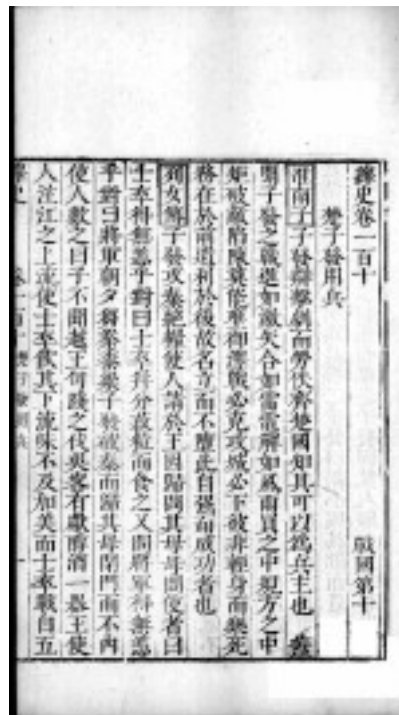 繹史卷一百十 戰國第十
楚子發用兵
淮南子子發辯擊劇而勞佚齊楚國知其可以爲兵主也
子發之戰進如激矢合如雷電解如風雨員之中規方之中
矩破敵陷陳莫能壅御澤戰必克攻城必下彼非輕身而樂死
務在於前遺利於後故名立而不墮此自强而成功者也
列女傳子發攻秦絶糧使人請於王因歸問其母母問使者曰
士卒得無恙乎對曰士卒并分菽粒而食之又問將軍得無恙
乎對曰將軍朝夕芻豢黍粱子發破秦而歸其母閉門而不内
使人數之曰子不聞越王句踐之伐吳客有獻醇酒一器王使
人注江之上流使士卒飲其下流味不及加美而士卒戰自五
繹史 卷一百十 楚子發用兵 一